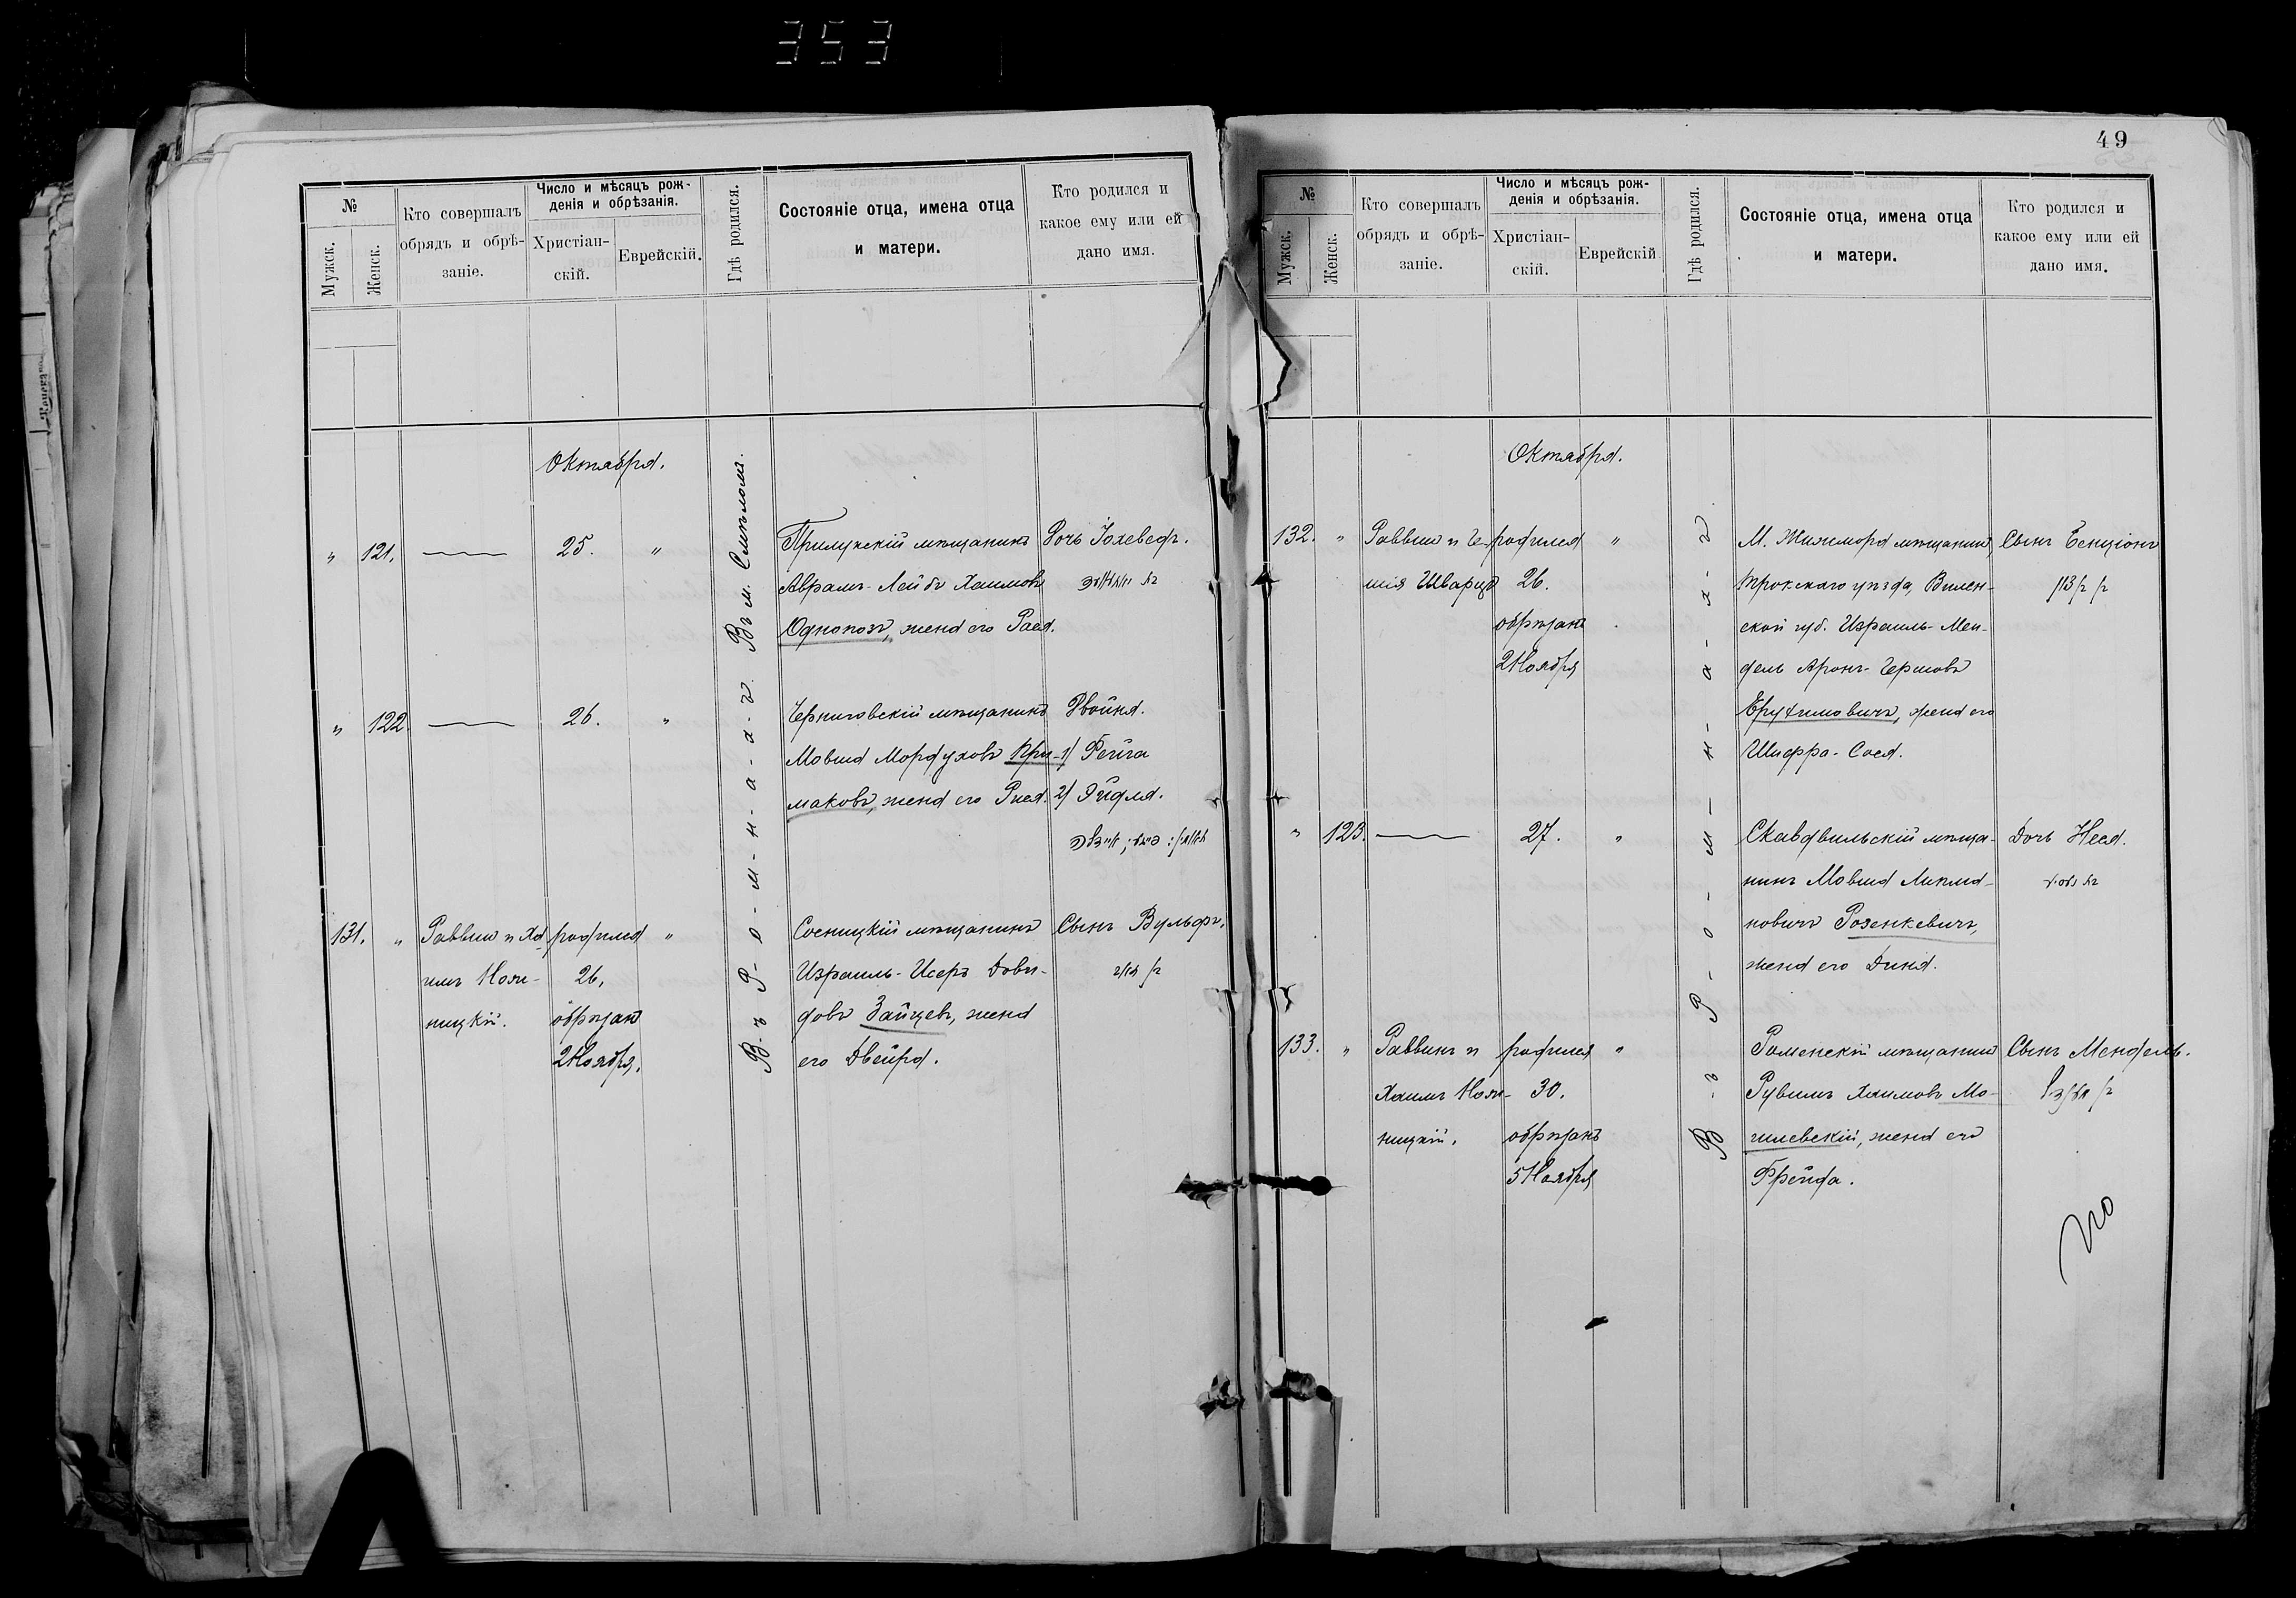 353
№
Мужск.
Женск.
Кто совершалъ
обрядъ и обрѣ-
заніе.
Число и мѣсяцъ рож-
денія и обрѣзанія.
Христіан-
скій.
Еврейскій.
Гдѣ родился.
Состояніе отца, имена отца
и матери.
Кто родился и
какое ему или ей
дано имя.
Октября.
Въ м. Смѣлома.
Въ Р-о-м-н-а-х-ъ
" 121.
25. "
Прилукскій мѣщанинъ
Абрамъ-Лейбъ Хаимовъ
Однопозъ, жена его Рася.
Дочь Іохеведъ.
" 122.
26. "
Черниговскій мѣщанинъ
Мовша Мордуховъ При-
маковъ, жена его Рися.
Двойня.
1) Фейга
2) Эйдля.
131. "
Раввин и Ха
имъ Нояс-
ницкій.
родился "
26,
обрѣзанъ
2 Ноября.
Сосницкій мѣщанинъ
Израиль-Исеръ Дови-
довъ Зайцевъ, жена
его Двейра.
Сынъ Вульфъ.
49
№
Мужск.
Женск.
Кто совершалъ
обрядъ и обрѣ-
заніе.
Число и мѣсяцъ рож-
денія и обрѣзанія.
Христіан-
скій.
Еврейскій
Гдѣ родился.
Состояніе отца, имена отца
и матери.
Кто родился и
какое ему или ей
дано имя.
Октября.
132. "
Раввин и
Шварцъ
родился "
26.
обрѣзанъ
2 Ноября
М. Жижморъ мѣщанинъ,
Трокскаго уѣзда, Вилен-
ской губ. Израиль-Мен-
дель Аронъ-Гершовъ
Ерухимовичъ, жена его
Шифра-Сося.
Сынъ Бенціонъ
" 123.
27. "
Скавдвильскій мѣща-
нинъ Мовша
новичъ Розенкевичъ,
жена его Дина.
Дочь Неся.
133. "
Раввинъ и
Хаимъ Нояс-
ницкій.
родился "
30.
обрѣзанъ
5 Ноября
Роменскій мѣщанинъ
Рувимъ Хаимовъ Мо-
гилевскій, жена его
Фрейда.
Сынъ Мендель.